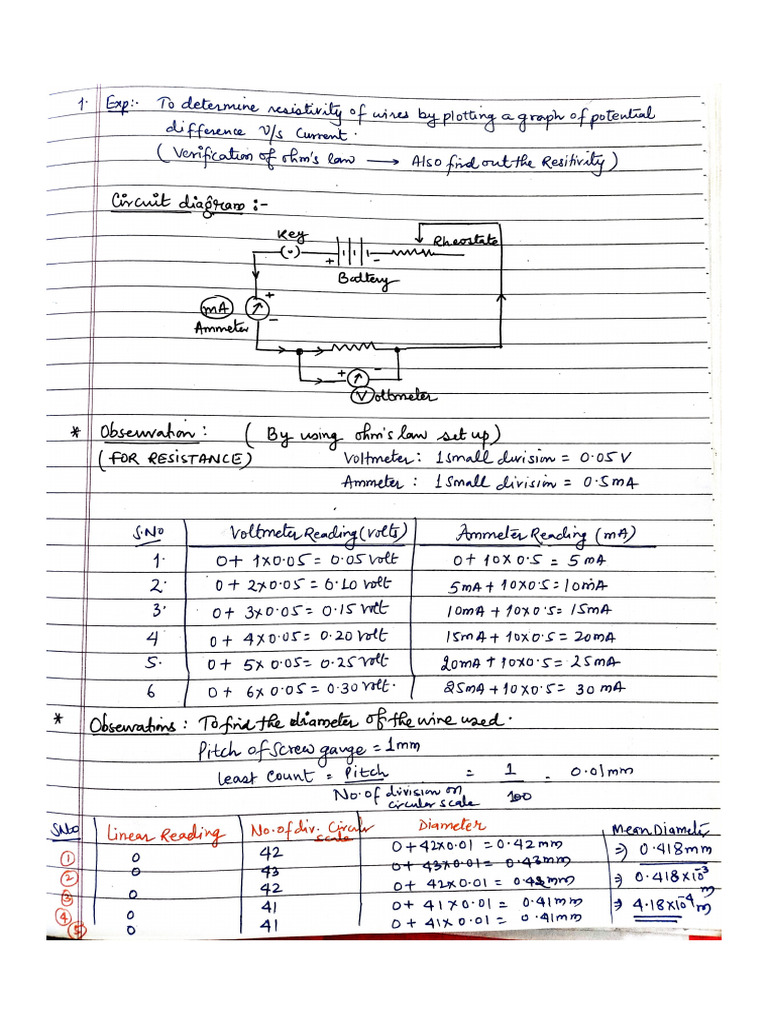 1. Exp:- To determine resistivity of wires by plotting a graph of potential
difference V/s Current.
(Verification of ohm's law → Also find out the Resitivity)
Circuit diagram :-
Key
Rheostate
+ -
Battery
+
mA
-
Ammeter
+ -
Voltmeter
* Observation : ( By using ohm's law set up)
(FOR RESISTANCE) Voltmeter : 1 small division = 0.05 V
Ammeter : 1 Small division = 0.5 mA
S.No Voltmeter Reading (volts) Ammeter Reading (mA)
1. 0 + 1x0.05 = 0.05 volt 0 + 10 x 0.5 = 5 mA
2. 0 + 2x0.05 = 0.10 volt 5mA + 10x0.5 = 10mA
3. 0 + 3x0.05 = 0.15 volt 10mA + 10x0.5 = 15mA
4 0 + 4x0.05 = 0.20 volt 15mA + 10x0.5 = 20mA
5. 0 + 5x 0.05 = 0.25 volt 20mA + 10x0.5 = 25mA
6 0 + 6x 0.05 = 0.30 volt. 25mA + 10x0.5 = 30 mA
* Observations : To find the diameter of the wire used.
Pitch of Screw gauge = 1mm
least count = Pitch / No. of division on circular scale = 1 / 100 = 0.01mm
S.No Linear Reading No. of div. Circular scale Diameter Mean Diameter
① 0 42 0 + 42x0.01 = 0.42 mm ⇒ 0.418 mm
② 0 43 0 + 43x0.01 = 0.43mm ⇒ 0.418 x 10⁻³ m
③ 0 42 0 + 42x0.01 = 0.42 mm
④ 0 41 0 + 41 x 0.01 = 0.41mm ⇒ 4.18 x 10⁻⁴ m
⑤ 0 41 0 + 41 x 0.01 = 0.41mm